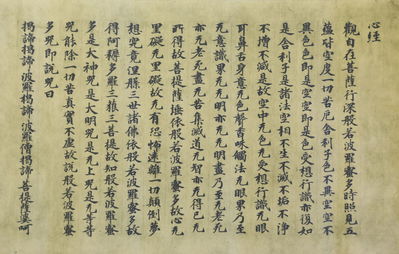 心経
觀自在菩薩行深般若波羅蜜多時照見五
蘊皆空度一切苦厄舎利子色不異空空不
異色色即是空空即是色受想行識亦復如
是舎利子是諸法空相不生不滅不垢不浄
不増不減是故空中无色无受想行識无眼
耳鼻舌身意无色聲香味觸法无眼界乃至
无意識界无无明亦无无明盡乃至无老死
亦无老死盡无苦集滅道无智亦无得已无
所得故菩提薩埵依般若波羅蜜多故心无
罣礙无罣礙故无有恐怖遠離一切顛倒夢
想究竟涅槃三世諸佛依般若波羅蜜多故
得阿耨多羅三藐三菩提故知般若波羅蜜
多是大神呪是大明呪是无上呪是无等等
呪能除一切苦真實不虚故説般若波羅蜜
多呪即説呪曰
掲諦掲諦 波羅掲諦 波羅僧掲諦 菩提薩婆呵